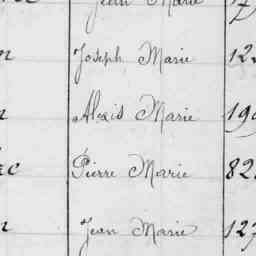 Jean Marie
Joseph Marie
Alexis Marie
Pierre Marie 82
Jean Marie 127